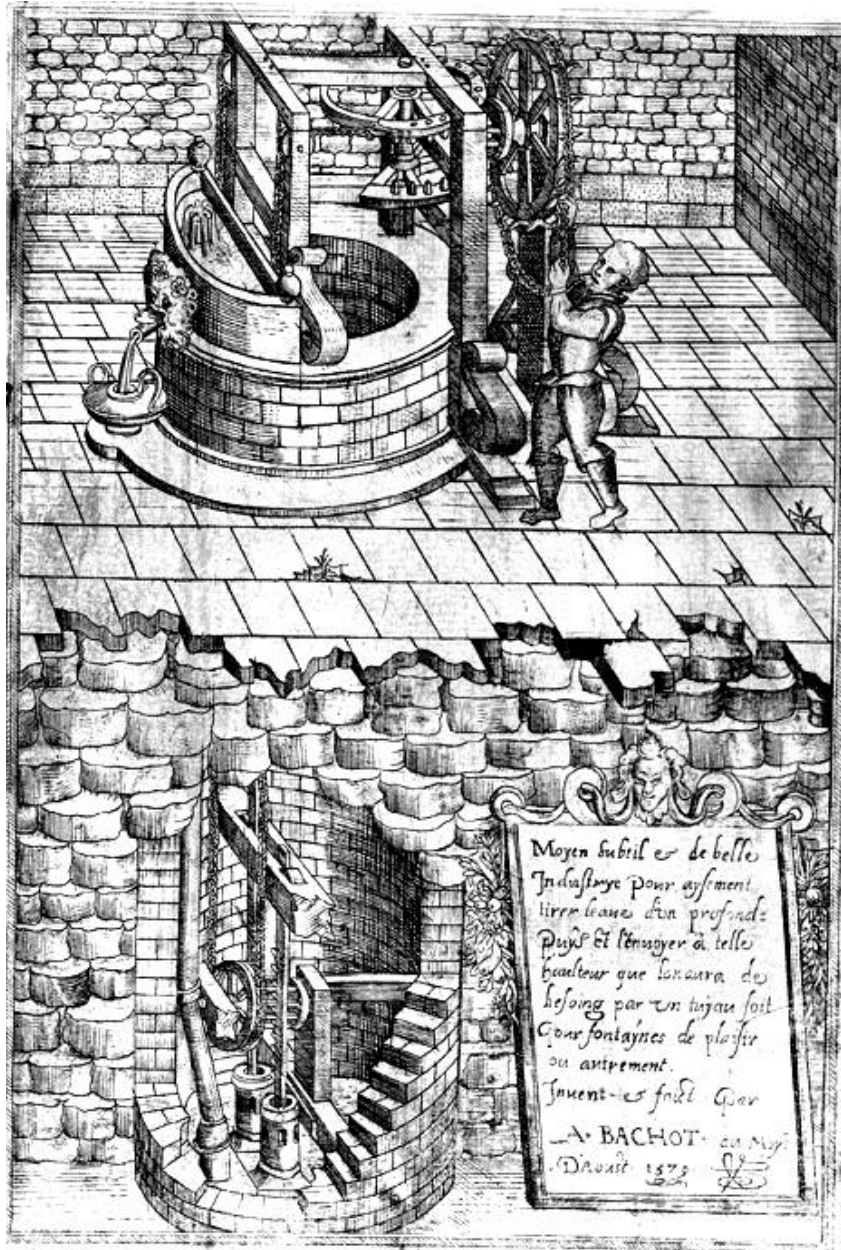 Moyen subtil et de belle
Industrye pour aysement
tirer leaue d'un profond
Puys Et l'envoyer a telle
haulteur que lon aura de
besoing par un tuyau soit
Pour fontaynes de plaisir
ou autrement.
Invent et faict Par
A. BACHOT. au Moys
D'Aoust. 1579